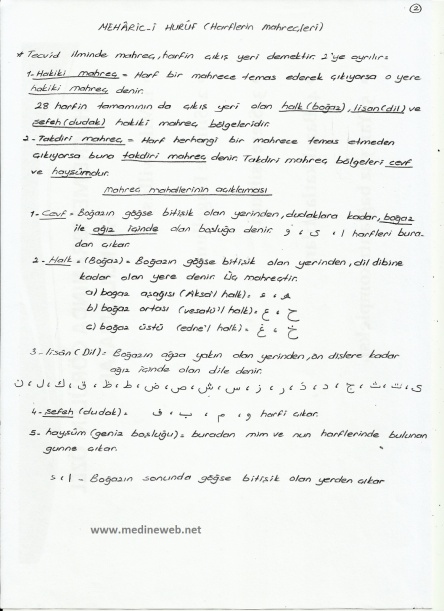 2
MEHÂRİC-İ HURÛF (Harflerin mahreçleri)
* Tecvid ilminde mahreç, harfin çıkış yeri demektir. 2'ye ayrılır:
1- Hakiki mahreç = Harf bir mahrece temas ederek çıkıyorsa o yere
hakiki mahreç denir.
28 harfin tamamının da çıkış yeri olan halk (boğaz), lisan (dil) ve
şefeh (dudak) hakiki mahreç bölgeleridir.
2- Takdiri mahreç = Harf herhangi bir mahrece temas etmeden
çıkıyorsa buna takdiri mahreç denir. Takdiri mahreç bölgeleri cevf
ve hayşûmdur.
Mahreç mahallerinin açıklaması
1- Cevf = Boğazın göğse bitişik olan yerinden, dudaklara kadar, boğaz
ile ağız içinde olan boşluğa denir. و ، ى ، ا harfleri bura-
dan çıkar.
2- Halk = (Boğaz) = Boğazın göğse bitişik olan yerinden, dil dibine
kadar olan yere denir. Üç mahreçtir.
a) boğaz aşağısı (Aksa'l halk) = ء ، ه
b) boğaz ortası (vesatü'l halk) = ع ، ح
c) boğaz üstü (edne'l halk) = غ ، خ
3- lisân (Dil) = Boğazın ağza yakın olan yerinden, ön dişlere kadar
ağız içinde olan dile denir.
ى ، ت ، ث ، ج ، د ، ذ ، ر ، ز ، س ، ش ، ص ، ض ، ط ، ظ ، ق ، ك ، ل ، ن
4- şefeh (dudak) = و ، م ، ب ، ف harfi çıkar.
5- hayşûm (geniz boşluğu) = buradan mim ve nun harflerinde bulunan
gunne çıkar.
ا ، ء - Boğazın sonunda göğse bitişik olan yerden çıkar
www.medineweb.net